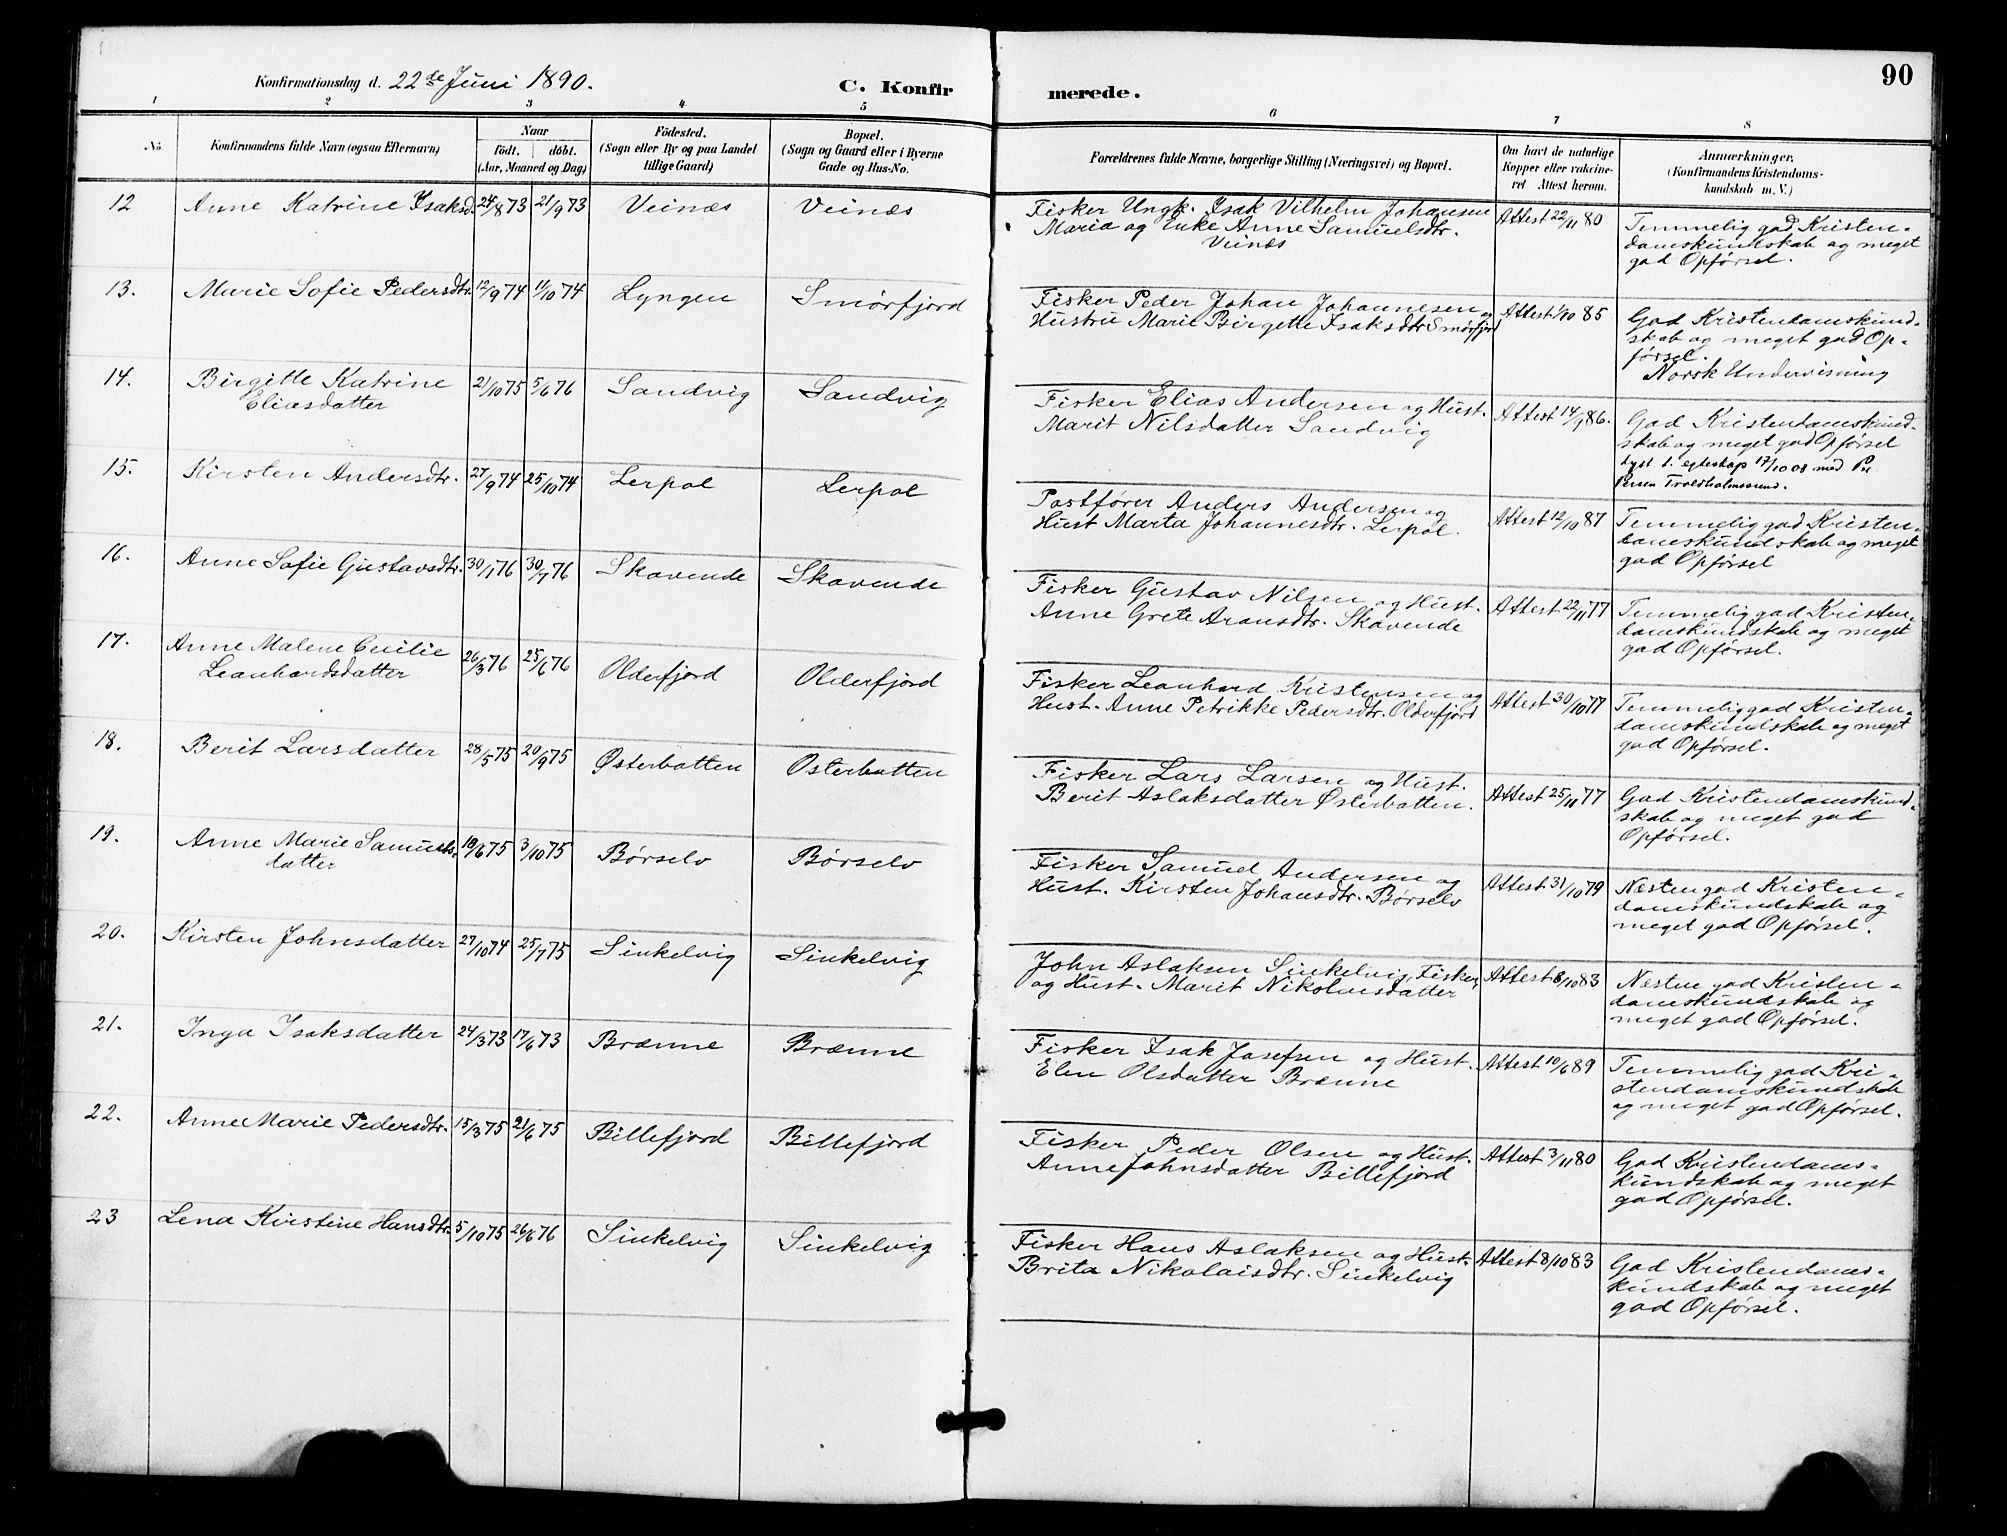 90
Konfirmationsdag d. 22de Juni 1890.
C. Konfirmerede.
1 2 3 4 5 6 7 8
No. Konfirmandens fulde Navn (ogsaa Efternavn) Naar født. døbt. (Aar, Maaned og Dag) Fødested. (Sogn eller By og paa Landet tillige Gaard) Bopæl. (Sogn og Gaard eller i Byerne Gade og Hus-No. Forældrenes fulde Navne, borgerlige Stilling (Næringsvei) og Bopæl. Om havt de naturlige Kopper eller vakcineret Attest herom. Anmærkninger. (Konfirmandens Kristendomskundskab m. V.)
12 Anne Katrine Isaksd. 24/8 73 21/9 73 Veinæs Veinæs
Fisker Ungk. Isak Vilhelm Johansen Attest 22/11 80 Temmelig god Kristen-
Maria og Enke Anne Samuelsdtr. domskundskab og meget
Veinæs god Opførsel.
13. Marie Sofie Pedersdtr. 12/9 74 11/10 74 Lyngen Smørfjord
Fisker Peder Johan Johannesen og Attest 1/10 85 God Kristendomskund-
Hustru Marie Birgette Isaksdtr Smørfjord skab og meget god Op-
førsel.
Norsk Undervisning
14. Birgitte Katrine 21/10 75 5/6 76 Sandvig Sandvig
Eliasdatter
Fisker Elias Andersen og Hust. Attest 14/9 86. God Kristendomskund-
Marit Nilsdatter Sandvig skab og meget god Opførsel
Lyst t. egteskap 17/10 08 med Per
Persen Troldholmsund.
15. Kirsten Andersdtr. 27/9 74 25/10 74 Lerpol Lerpol
Postfører Anders Andersen og Attest 12/10 87 Temmelig god Kristen-
Hust Marta Johannesdtr. Lerpol. domskundskab og meget
god Opførsel
16. Anne Sofie Gustavsdtr. 30/1 76 30/7 76 Skovende Skovende
Fisker Gustav Nilsen og Hust. Attest 22/11 77 Temmelig god Kristen-
Anne Grete Aronsdtr. Skovende domskundskab og meget
god Opførsel.
17. Anne Malene Cecilie 26/3 76 25/6 76 Olderfjord Olderfjord
Leonhardsdatter
Fisker Leonhard Kristensen og Attest 30/10 77 Temmelig god Kristen-
Hust. Anne Petrikke Pedersdtr. Olderfjord domskundskab og meget
god Opførsel.
18. Berit Larsdatter 28/5 75 20/9 75 Østerbotten Østerbotten
Fisker Lars Larsen og Hust. Attest 25/11 77 God Kristendomskund-
Berit Aslaksdatter Østerbotten. skab og meget god
Opførsel.
19. Anne Marie Samuels- 18/6 75 3/10 75 Børselv Børselv
datter
Fisker Samuel Andersen og Attest 31/10 79 Næsten god Kristen-
Hust. Kirsten Johansdtr. Børselv domskundskab og
meget god Opførsel.
20. Kirsten Johnsdatter 27/10 74 25/7 75 Sinkelvig Sinkelvig
John Aslaksen Sinkelvig, Fisker, Attest 8/10 83 Næsten god Kristen-
og Hust. Marit Nikolaisdatter domskundskab og
meget god Opførsel.
21. Inga Isaksdatter 24/3 73 17/6 73 Brænne Brænne
Fisker Isak Josefsen og Hust. Attest 10/6 89 Temmelig god Kri-
Elen Olsdatter Brænne stendomskundskab
og meget god Opførsel.
22. Anne Marie Pedersdtr. 15/3 75 21/6 75 Billefjord Billefjord
Fisker Peder Olsen og Hust. Attest 3/11 80 God Kristendoms-
Anne Johnsdatter Billefjord kundskab og meget
god Opførsel.
23 Lena Kirstine Hansdtr. 5/10 75 26/6 76 Sinkelvig Sinkelvig
Fisker Hans Aslaksen og Hust. Attest 8/10 83 God Kristendoms-
Brita Nikolaisdtr. Sinkelvig kundskab og meget
god Opførsel.